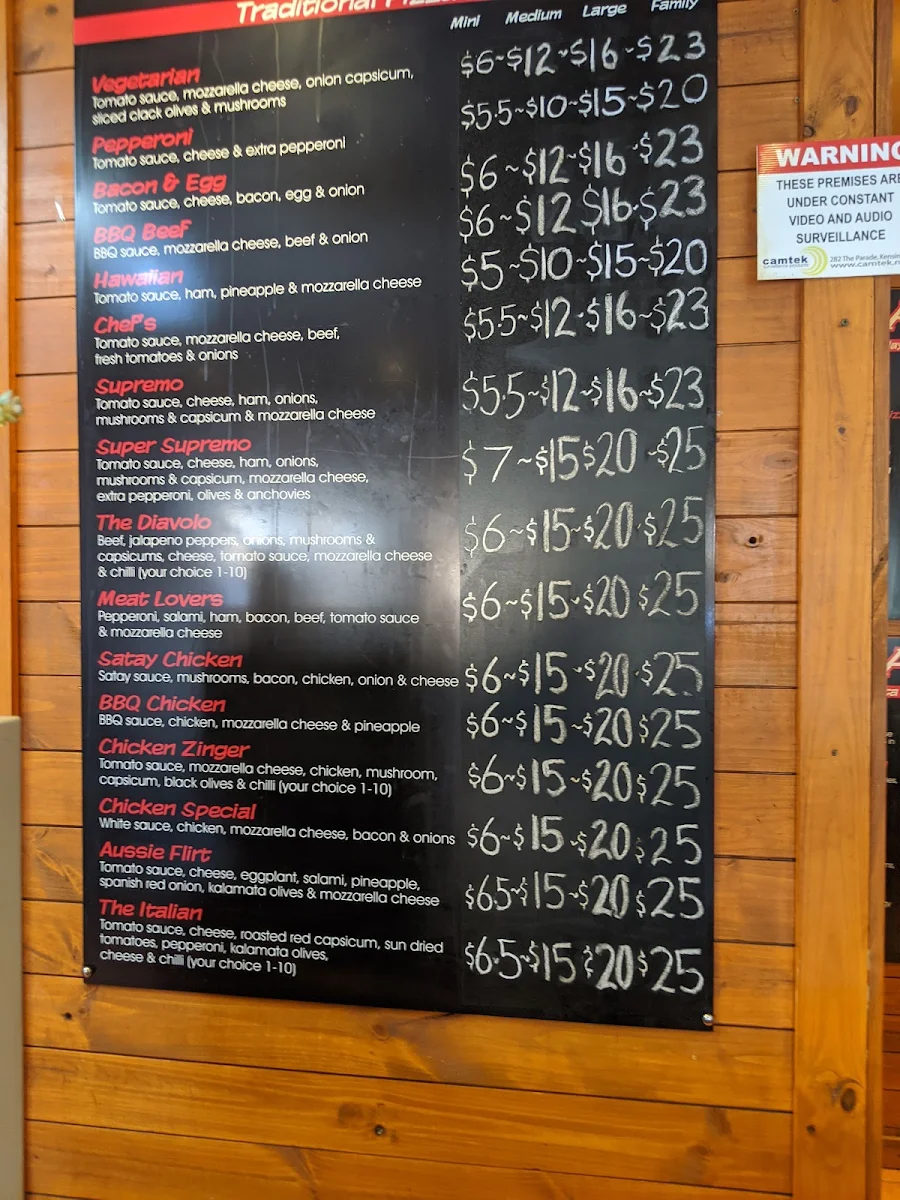 Traditional
Mini Medium Large Family
Vegetarian $6~$12~$16~$23
Tomato sauce, mozzarella cheese, onion capsicum,
sliced clack olives & mushrooms
Pepperoni $5.5~$10~$15~$20
Tomato sauce, cheese & extra pepperoni
Bacon & Egg $6~$12~$16~$23
Tomato sauce, cheese, bacon, egg & onion
BBQ Beef $6~$12 $16~$23
BBQ sauce, mozzarella cheese, beef & onion
Hawaiian $5~$10~$15~$20
Tomato sauce, ham, pineapple & mozzarella cheese
Chef's $5.5~$12~$16~$23
Tomato sauce, mozzarella cheese, beef,
fresh tomatoes & onions
Supremo $5.5~$12~$16~$23
Tomato sauce, cheese, ham, onions,
mushrooms & capsicum & mozzarella cheese
Super Supremo $7~$15 $20~$25
Tomato sauce, cheese, ham, onions,
mushrooms & capsicum, mozzarella cheese,
extra pepperoni, olives & anchovies
The Diavolo $6~$15~$20 $25
Beef, jalapeno peppers, onions, mushrooms &
capsicums, cheese, tomato sauce, mozzarella cheese
& chilli (your choice 1-10)
Meat Lovers $6~$15~$20 $25
Pepperoni, salami, ham, bacon, beef, tomato sauce
& mozzarella cheese
Satay Chicken $6~$15~$20 $25
Satay sauce, mushrooms, bacon, chicken, onion & cheese
BBQ Chicken $6~$15~$20 $25
BBQ sauce, chicken, mozzarella cheese & pineapple
Chicken Zinger $6~$15~$20 $25
Tomato sauce, mozzarella cheese, chicken, mushroom,
capsicum, black olives & chilli (your choice 1-10)
Chicken Special $6~$15~$20 $25
White sauce, chicken, mozzarella cheese, bacon & onions
Aussie Flirt $6.5~$15~$20 $25
Tomato sauce, cheese, eggplant, salami, pineapple,
spanish red onion, kalamata olives & mozzarella cheese
The Italian $6.5~$15 $20 $25
Tomato sauce, cheese, roasted red capsicum, sun dried
tomatoes, pepperoni, kalamata olives,
cheese & chilli (your choice 1-10)
WARNING
THESE PREMISES ARE
UNDER CONSTANT
VIDEO AND AUDIO
SURVEILLANCE
camtek
282 The Parade,
www.camtek.n